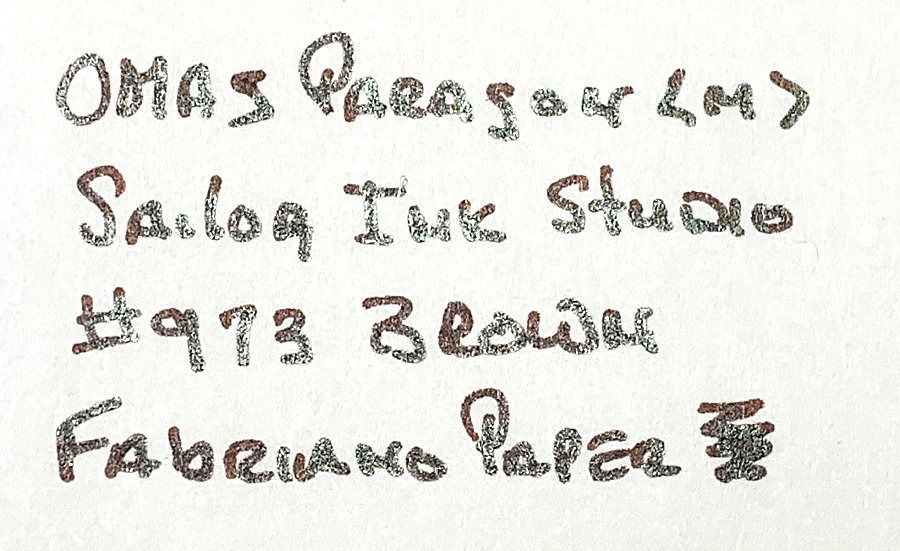 OMAS Paragon <M>
Sailor Ink Studio
#973 Brown
Fabriano Paper